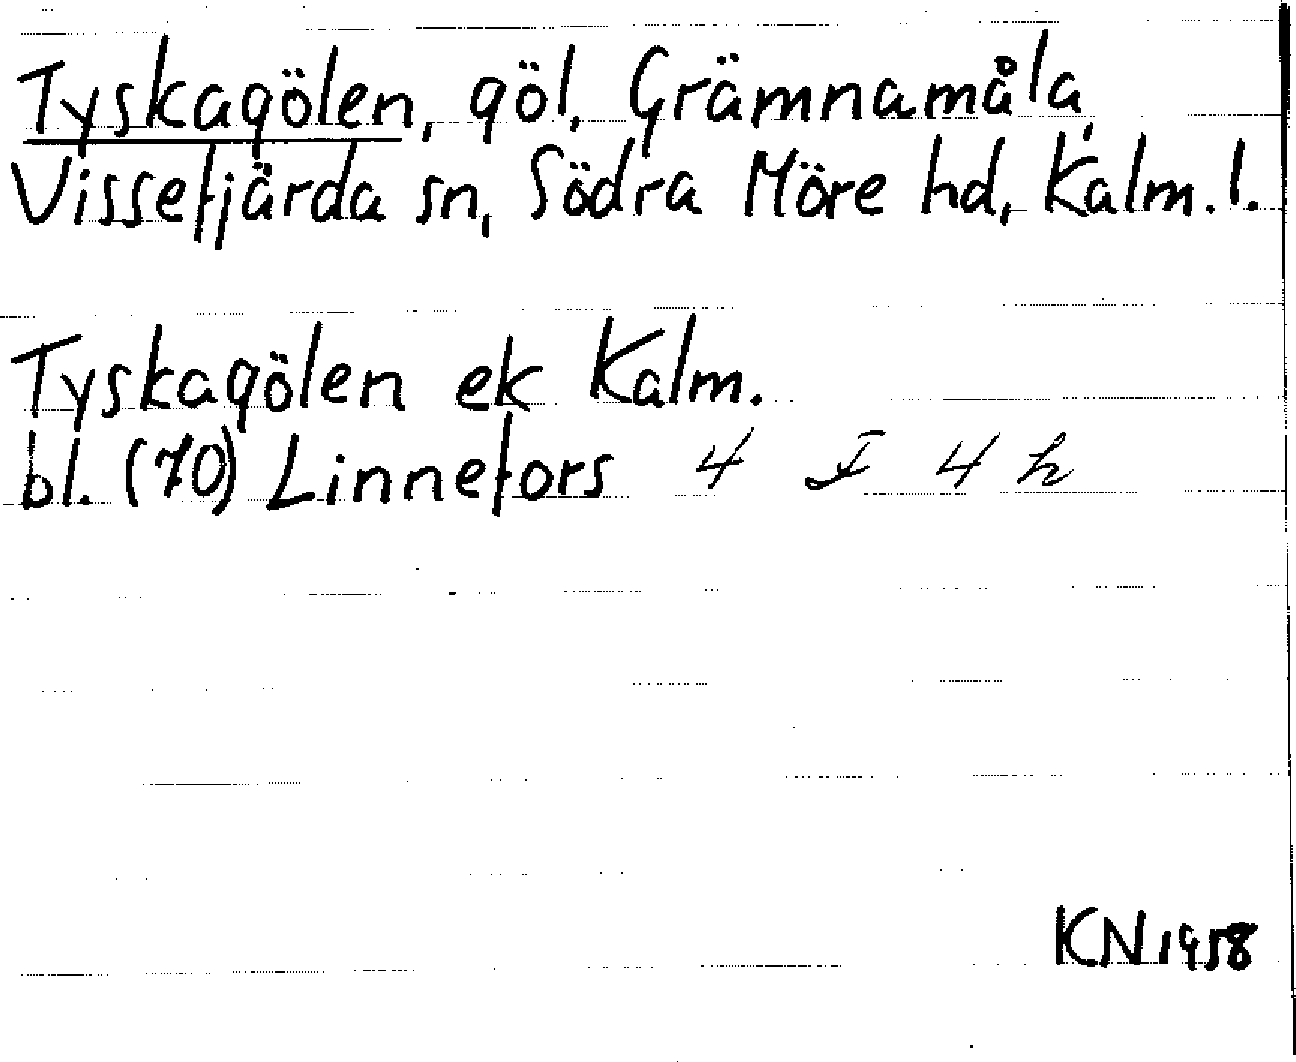 Tyskagölen, göl, Grämnamåla,
Vissefjärda sn, Södra Möre hd, Kalm. l.
Tyskagölen ek Kalm.
bl. (70) Linnefors 4 I 4 h
KN 1958